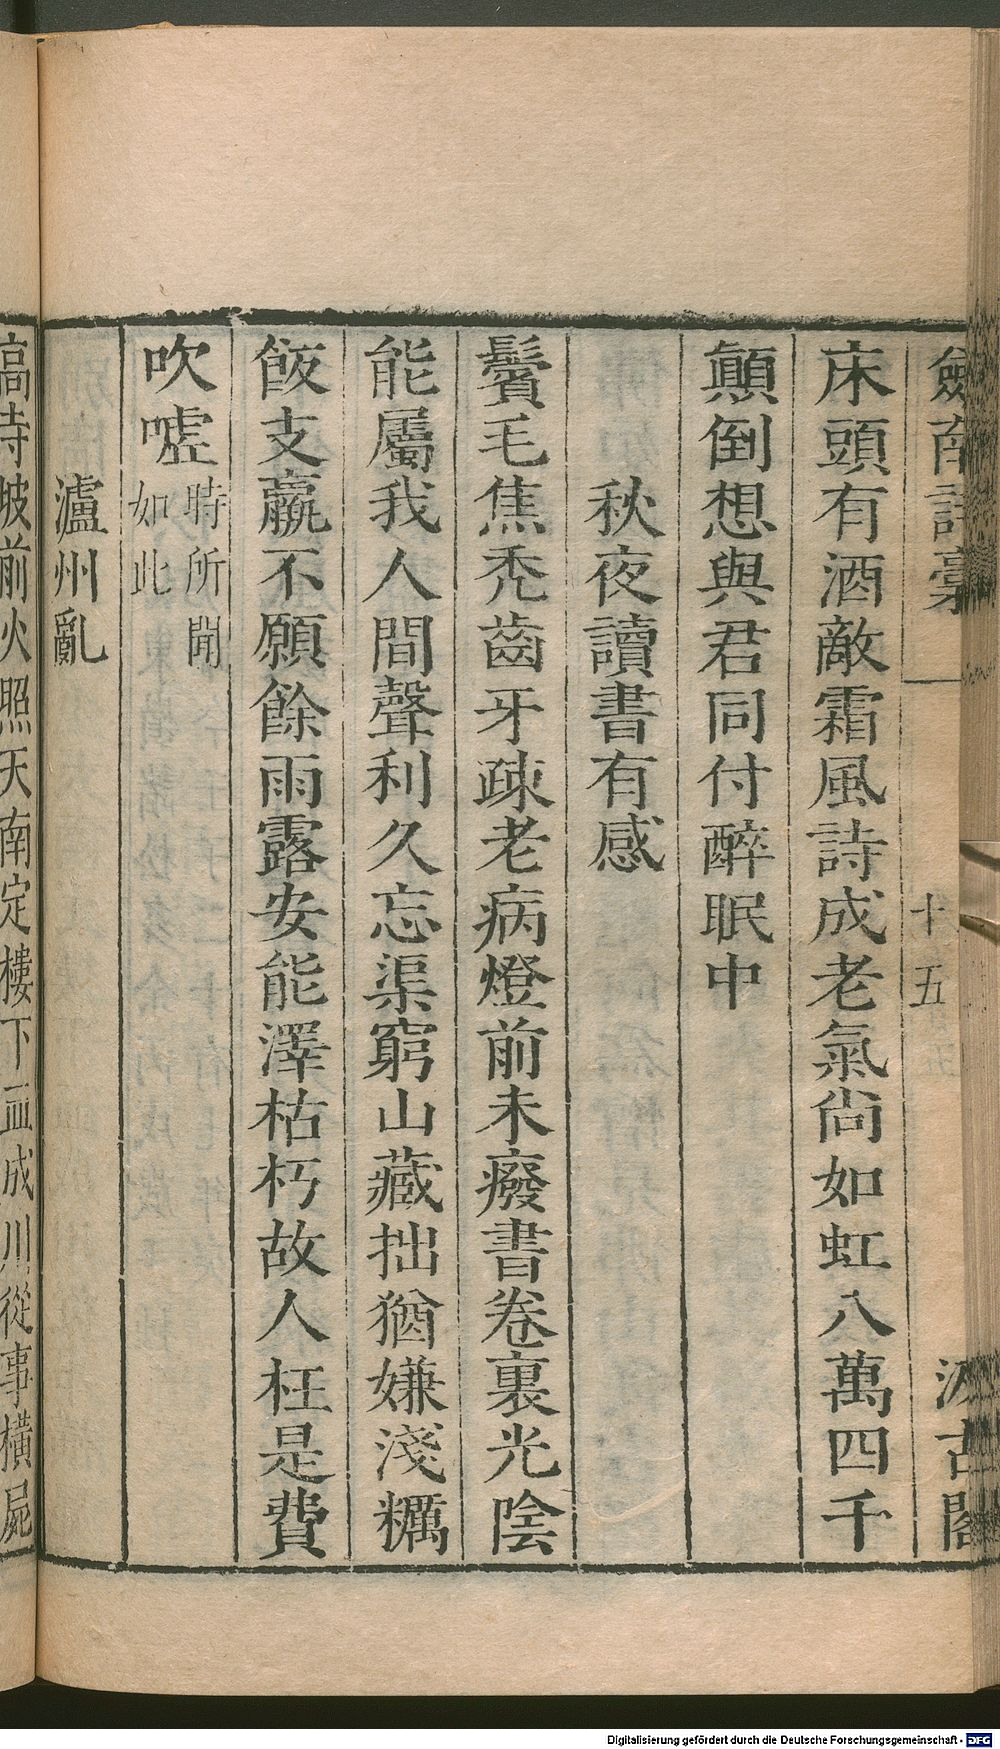 劒南詩稾
十五
汲古閣
床頭有酒敵霜風詩成老氣尚如虹八萬四千
顛倒想與君同付醉眠中
秋夜讀書有感
鬢毛焦禿齒牙疎老病燈前未廢書卷裏光陰
能屬我人間聲利久忘渠窮山藏拙猶嫌淺糲
飯支羸不願餘雨露安能澤枯朽故人枉是費
吹噓時所聞
如此
瀘州亂
高侍坡前火照天南定樓下血成川從事橫屍
Digitalisierung gefördert durch die Deutsche Forschungsgemeinschaft - DFG